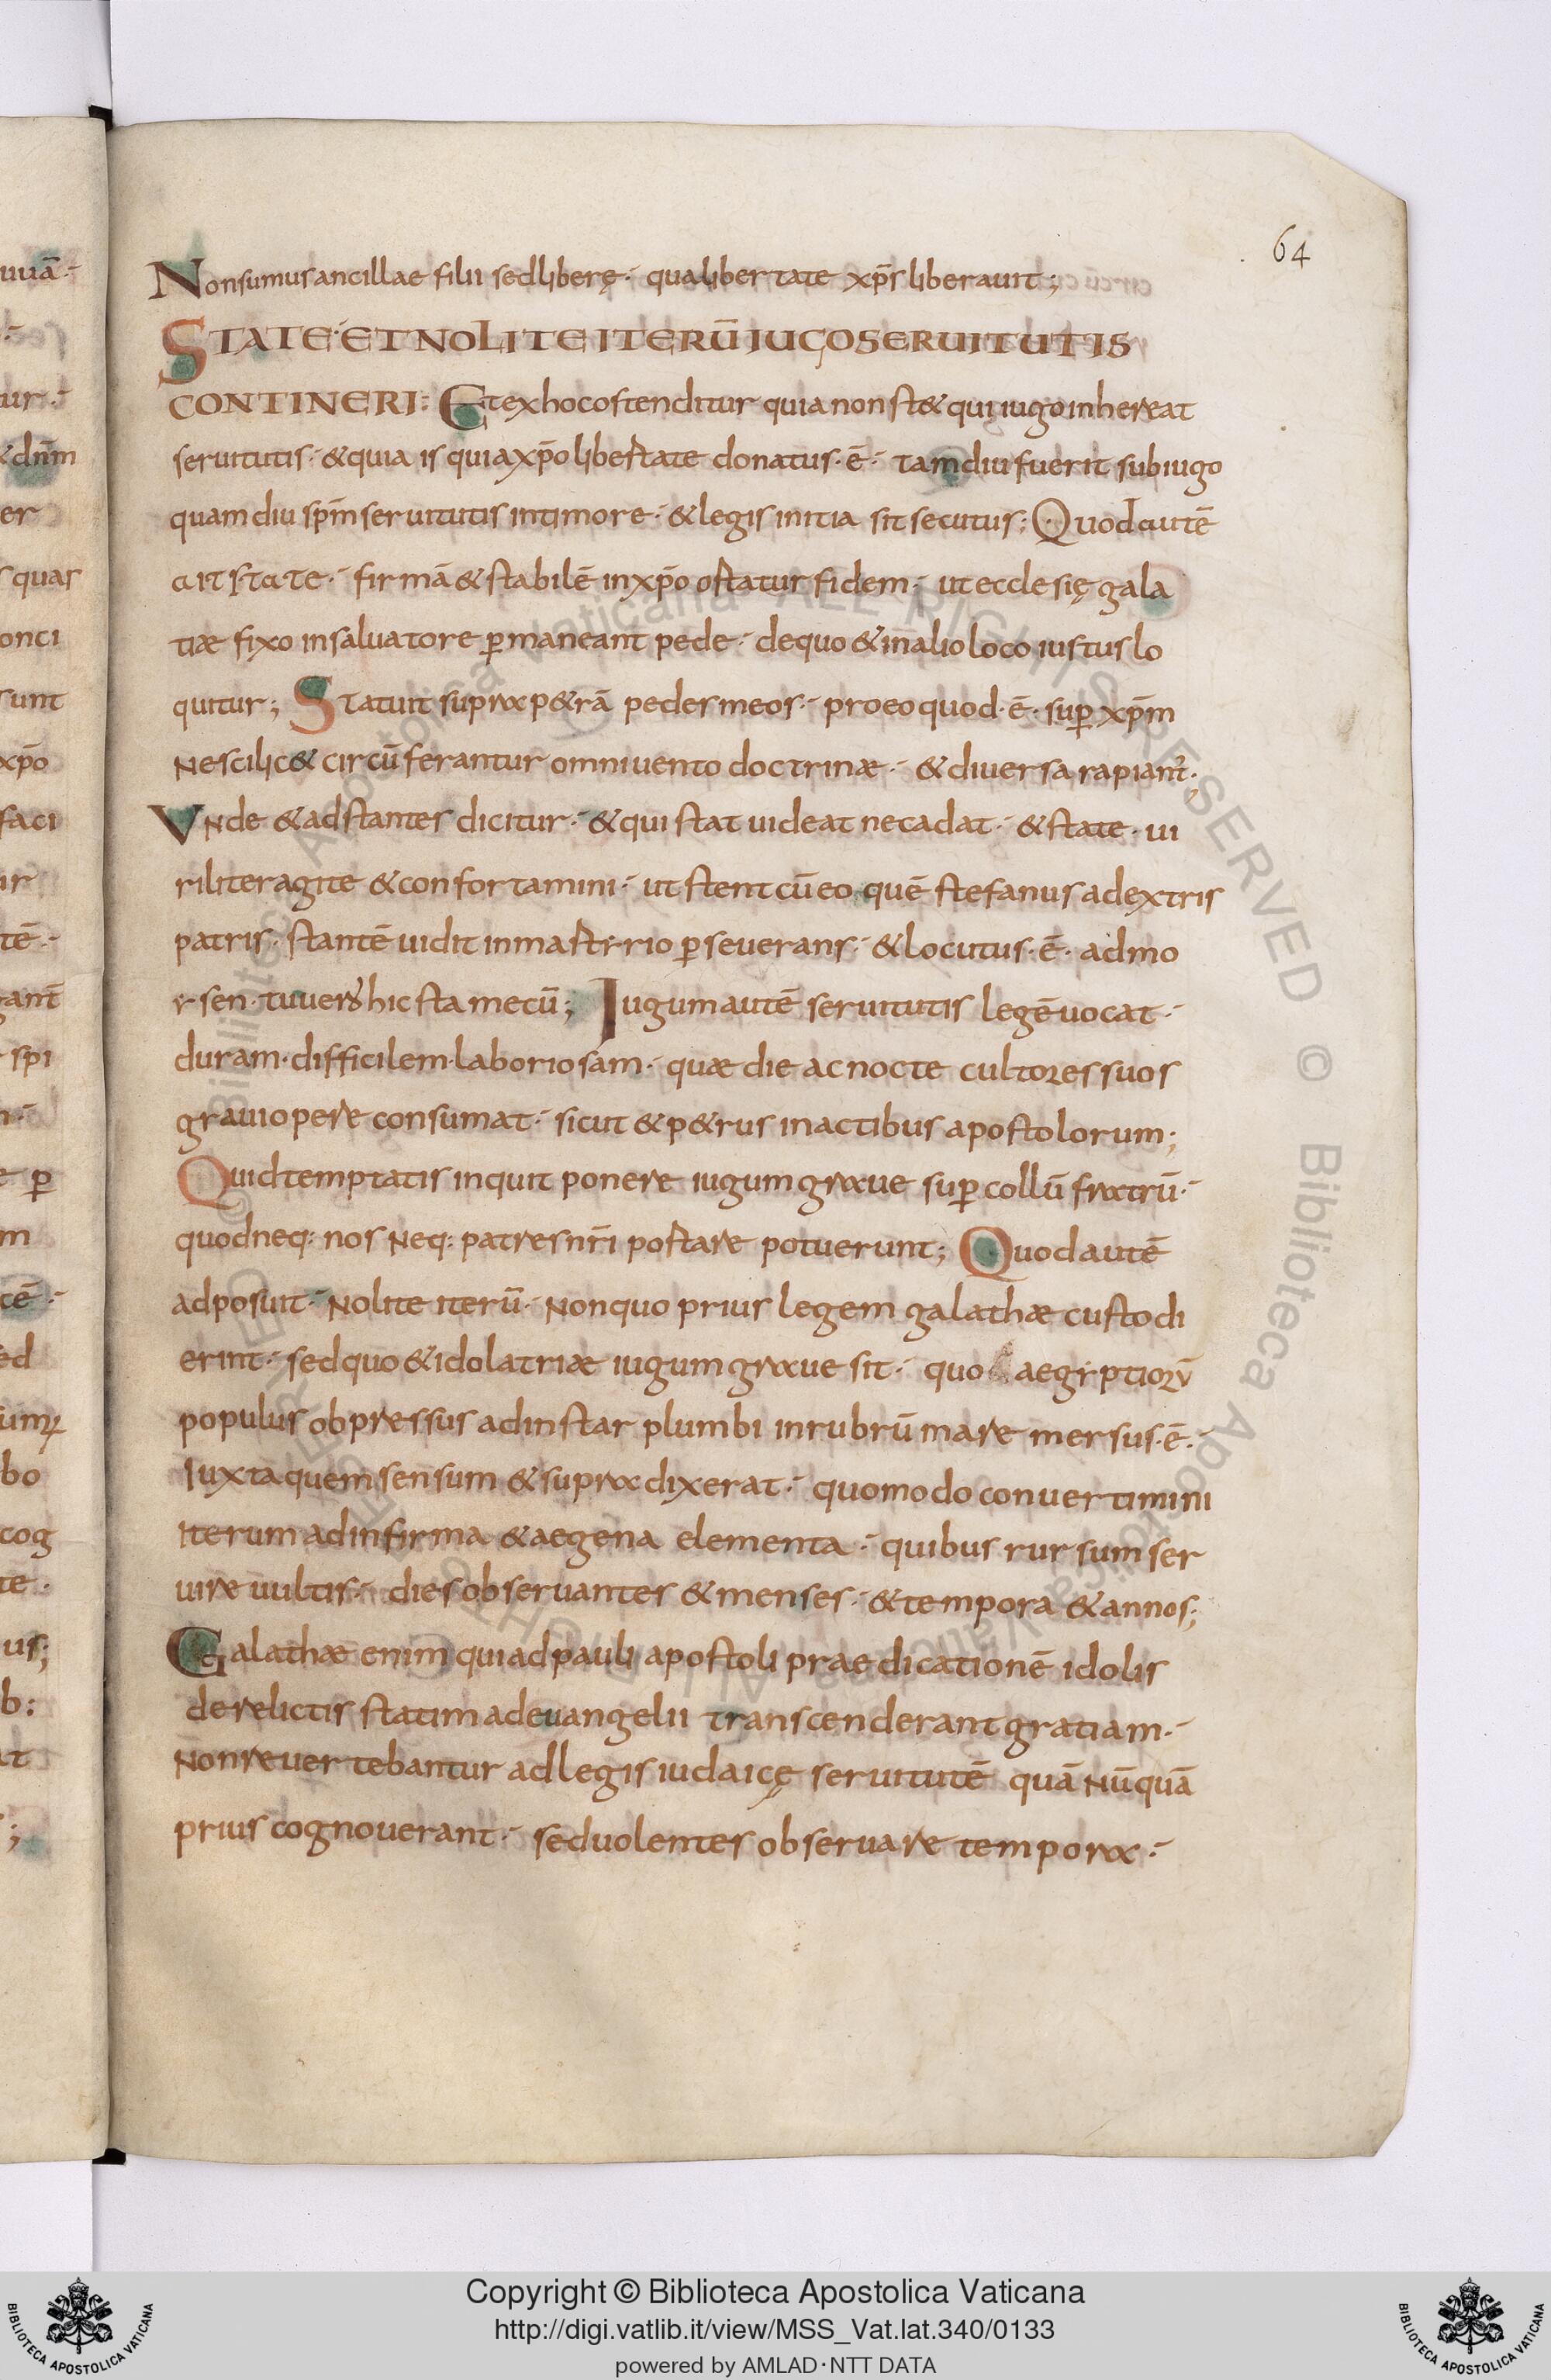 64
Nonsumusancillae filii sedliberę· qualibertate xp̄s liberauit;
STATE·ET NOLITE ITERŪ IUGO SERUITUTIS
CONTINERI: Etexhocostenditur quia non st& qui iugo inhereat
seruitutis· &quia is quia xp̄o libertate donatus·ē· tamdiu fuerit sub iugo
quamdiu sp̄m seruitutis intimore· &legis initia sit secutus: Quod autē
ait state· firmā & stabilē in xp̄o ortatur fidem· ut ecclesię gala
tiæ fixo in saluatore ꝑmaneant pede· de quo & in alio loco iustus lo
quitur; Statuit supra p&rā pedes meos· pro eo quod·ē· suꝑ xp̄m
Nescilic& circūferantur omniuento doctrinæ· & diuersa rapiant̄;
Vnde & adstantes dicitur· & qui stat uideat ne cadat· & state· ui
riliter agite & confortamini· ut stent cū eo quē stefanus a dextris
patris· stantē uidit in martyrio ꝑseuerans· & locutus·ē· ad mo
ysen· tu uero hic sta mecū; Iugum autē seruitutis legē uocat·
duram· difficilem· laboriosam· quæ die ac nocte cultores suos
graui opere consumat· sicut & p&rus in actibus apostolorum;
Quid temptatis inquit ponere iugum graue suꝑ collū fratrū·
quod neq: nos neq: patres nr̄i portare potuerunt; Quod autē
adposuit· Nolite iterū· Non quo prius legem galathæ custodi
erint· sed quo & idolatriæ iugum graue sit· quo aegyptiorū
populus obpressus ad instar plumbi in rubrū mare mersus·ē·
Iuxta quem sensum & supra dixerat· quomodo conuertimini
iterum ad infirma & aegena elementa· quibus rursum ser
uire uultis· dies obseruantes & menses· & tempora & annos;
Galathæ enim qui ad pauli apostoli praedicationē idolis
derelictis statim ad euangelii transcenderant gratiam·
Non reuertebantur ad legis iudaicę seruitutē quā nūquā
prius cognouerant· sed uolentes obseruare tempora·
Copyright © Biblioteca Apostolica Vaticana
http://digi.vatlib.it/view/MSS_Vat.lat.340/0133
powered by AMLAD·NTT DATA
BIBLIOTECA APOSTOLICA VATICANA
BIBLIOTECA APOSTOLICA VATICANA